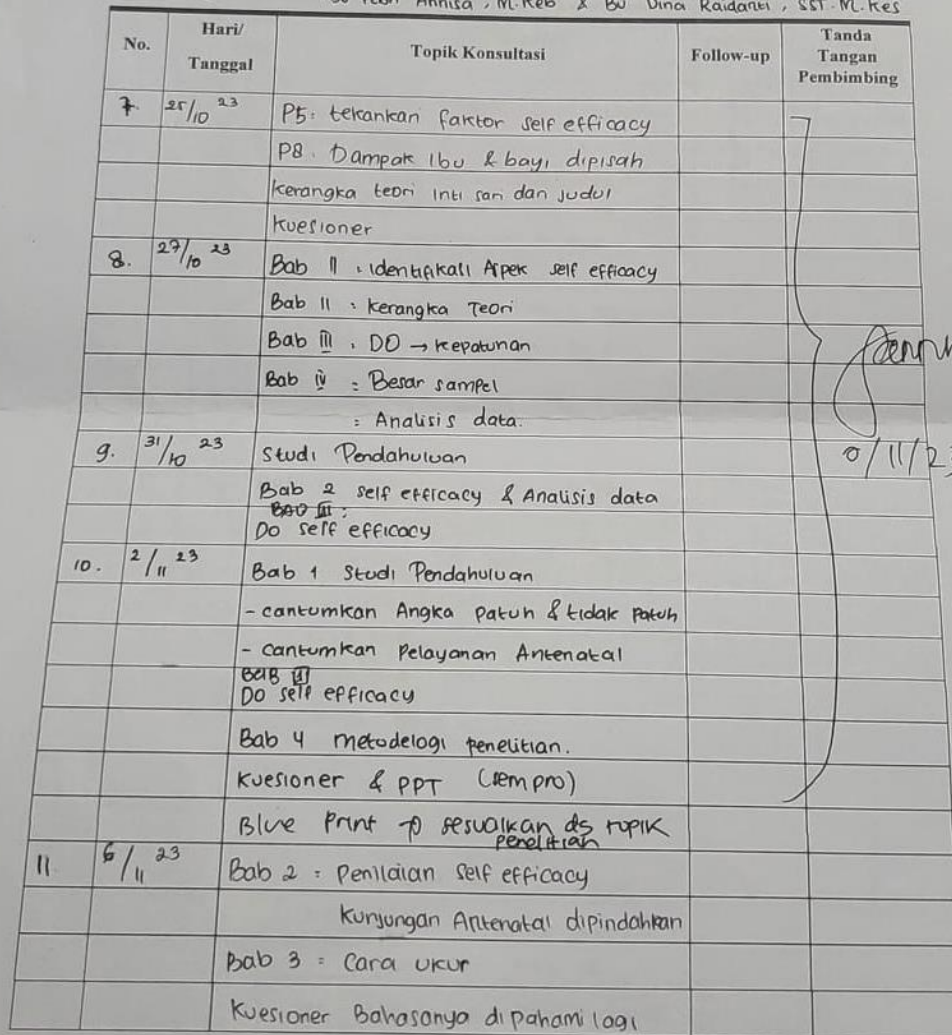 Annisa, M.Keb & Bu Dina Raidanti, SST. M.Kes
No. Hari/ Tanggal Topik Konsultasi Follow-up Tanda Tangan Pembimbing
7. 25/10 23 P5: tekankan faktor self efficacy
P8. Dampak Ibu & bayi dipisah
Kerangka teori inti sari dan Judul
Kuesioner
8. 27/10 23 Bab II : identifikasi Aspek self efficacy
Bab II : Kerangka Teori
Bab III . DO → Kepatuhan
Bab IV : Besar sampel
: Analisis data.
9. 31/10 23 Studi Pendahuluan
Bab 2 self efficacy & Analisis data
BAB III :
Do self efficacy
10. 2/11 23 Bab 1 Studi Pendahuluan
- cantumkan Angka patuh & tidak patuh
- cantumkan Pelayanan Antenatal
BaB III
Do self efficacy
Bab 4 metodelogi penelitian.
Kuesioner & PPT (sempro)
Blue Print → sesuaikan dg topik
penelitian
11 6/11 23 Bab 2 : Penilaian self efficacy
Kunjungan Antenatal dipindahkan
Bab 3 : Cara ukur
Kuesioner Bahasanya dipahami lagi